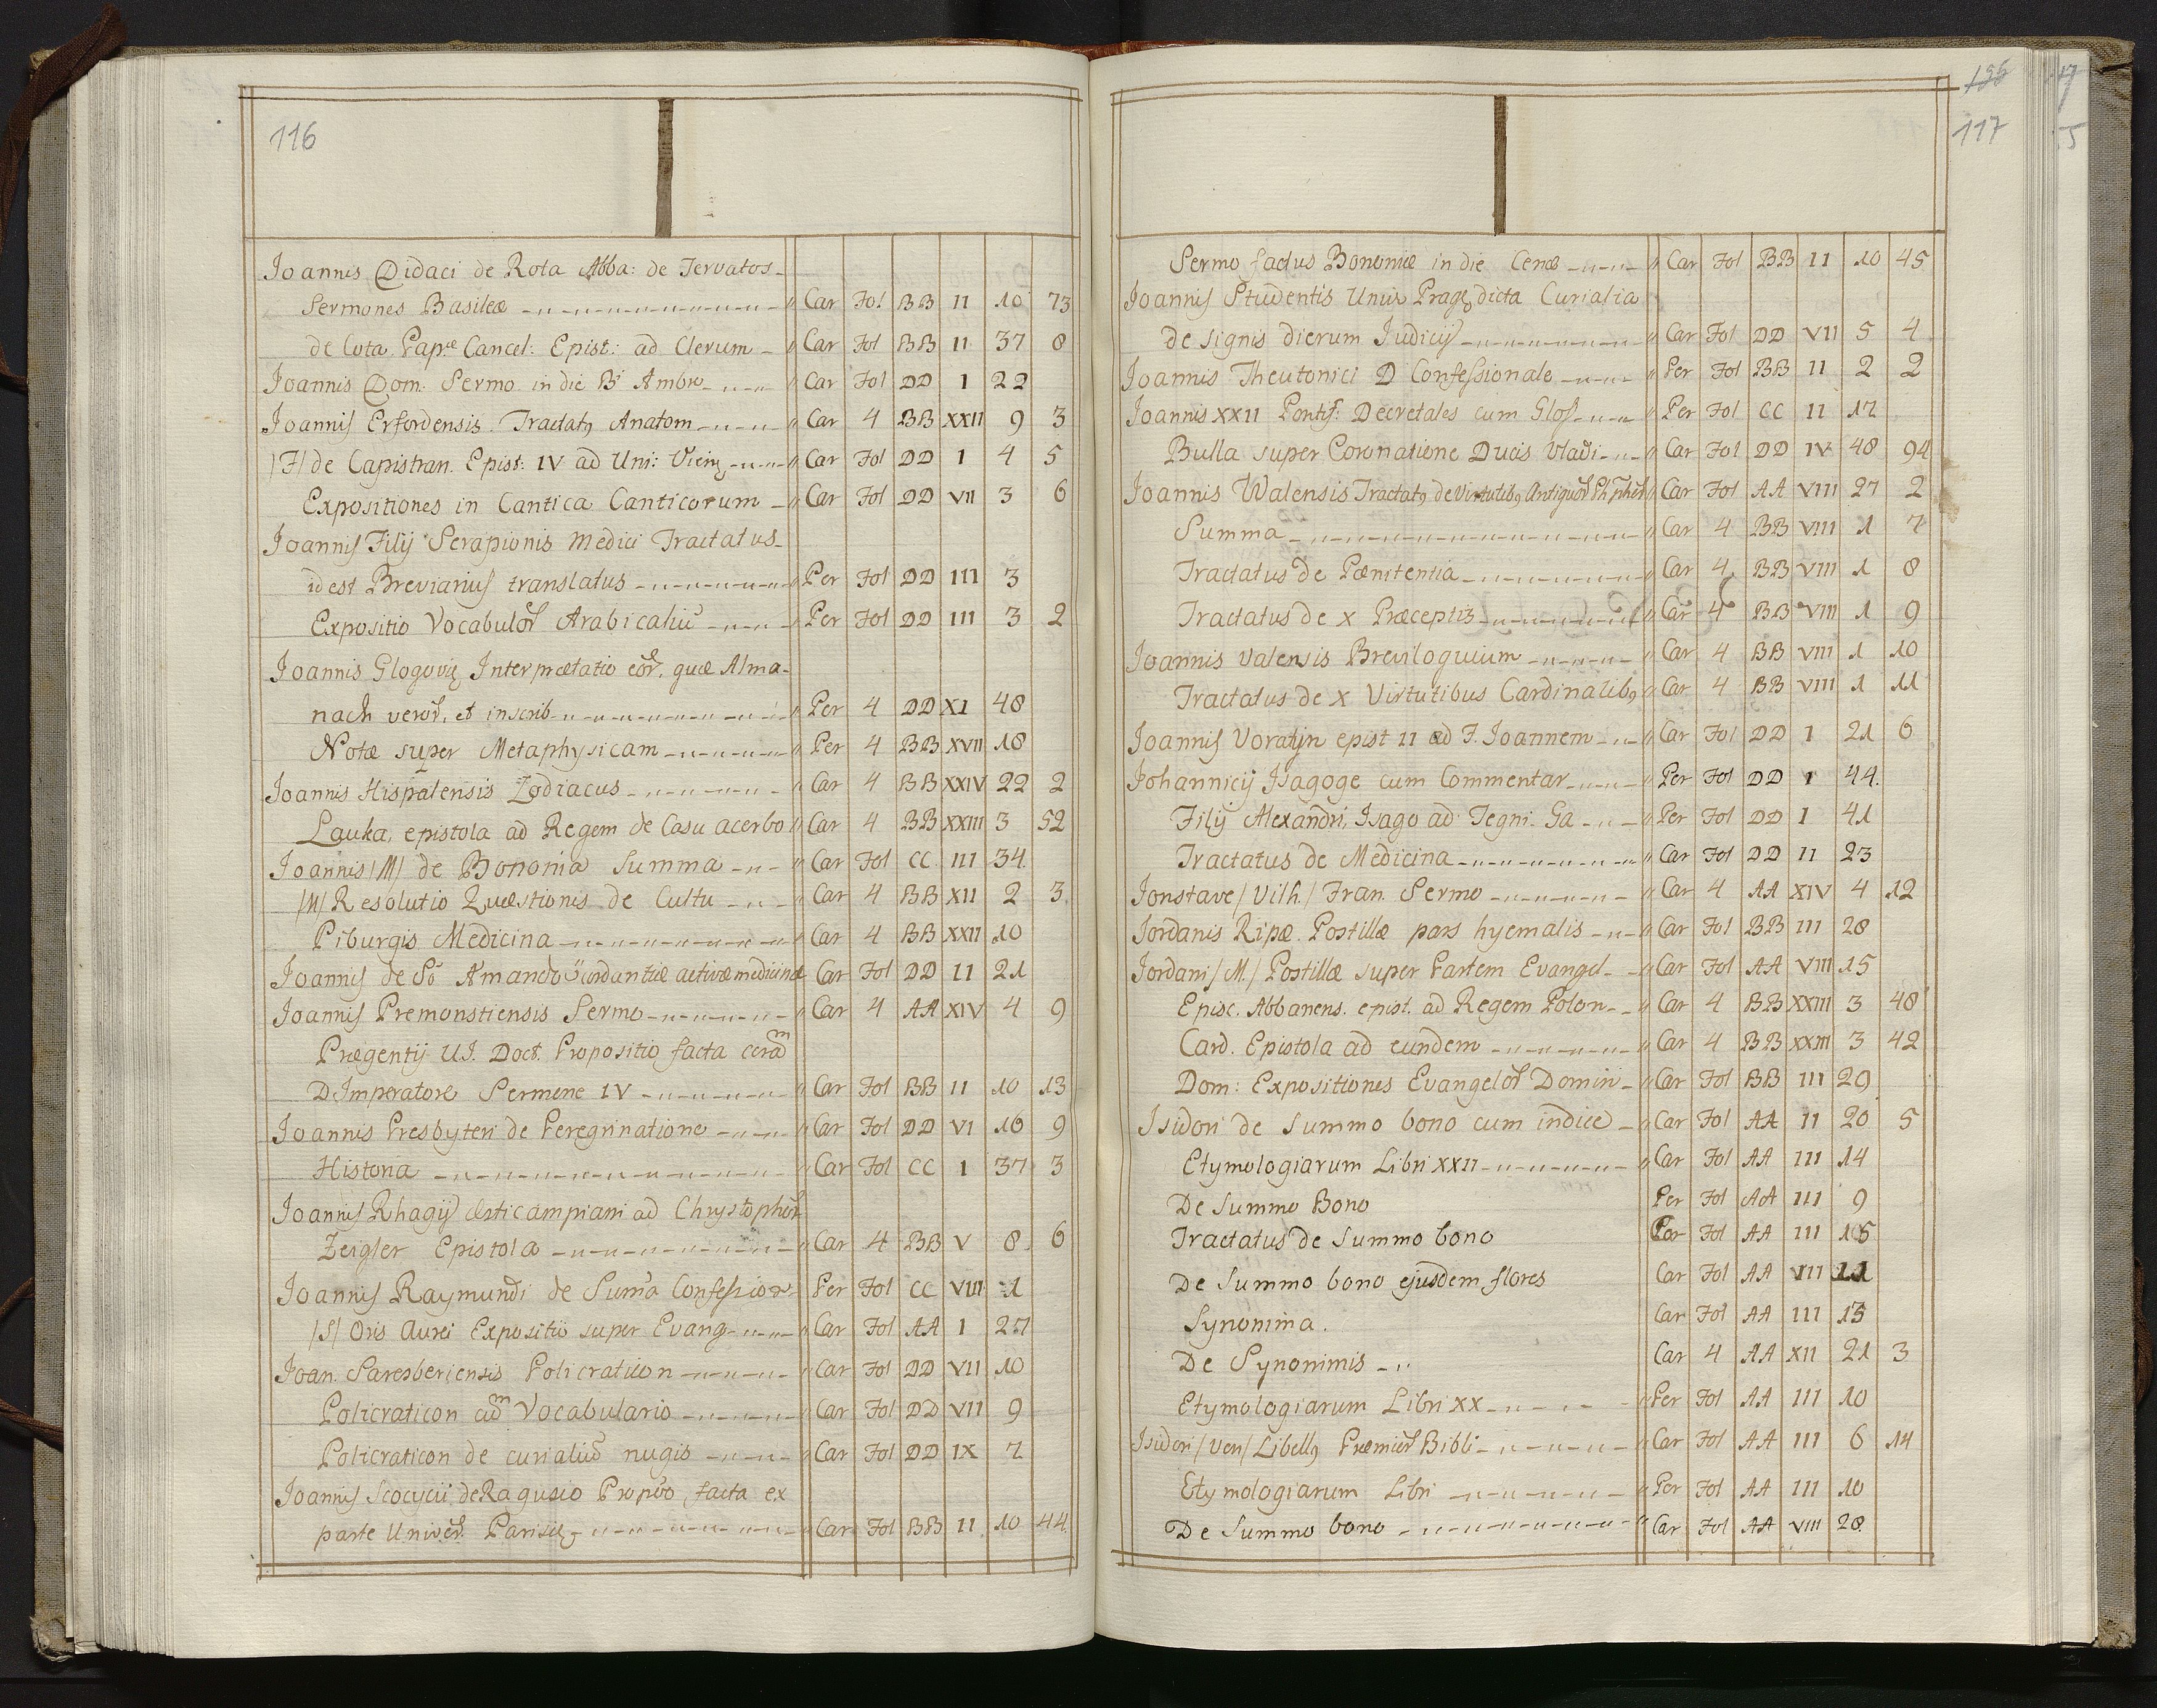 116
Joannis Didaci de Rota Abba: de Tervatos
Sermones Basileæ " Car Fol BB II 10 73
de Cota Pap:æ Cancel: Epist: ad Clerum " Car Fol BB II 37 8
Joannis Dom: Sermo in die B Ambro " Car Fol DD I 22
Joannis Erfordensis Tractatꝰ Anatom " Car 4 BB XXII 9 3
/F/ de Capistran. Epist: IV ad Uni: Vien " Car Fol DD I 4 5
Expositiones in Cantica Canticorum " Car Fol DD VII 3 6
Joannis Filij Serapionis Medici Tractatus
id est Breviarius translatus " Per Fol DD III 3
Expositio Vocabulor Arabicaliũ Per Fol DD III 3 2
Joannis Glogoviꝫ Interprætatio eor, quæ Alma-
nach veror, et inscrib " Per 4 DD XI 48
Notæ super Metaphysicam " Per 4 BB XVII 18
Joannis Hispalensis Zodiacus " Car 4 BB XXIV 22 2
Lauka, epistola ad Regem de Casu acerbo " Car 4 BB XXIII 3 52
Joannis /M/ de Bononia Summa " Car Fol CC III 34.
/M/ Resolutio Quæstionis de Cultu " Car 4 BB XII 2 3
Piburgis Medicina " Car 4 BB XXII 10
Joannis de So Amando cordantiæ activæ medicinæ Car Fol DD II 21
Joannis Premonstiensis Sermo " Car 4 AA XIV 4 9
Prægentij U.J. Doct. Propositio facta corã
D. Imperatore Sermone IV " Car Fol BB II 10 13
Joannis Presbyteri de Peregrinatione " Car Fol DD VI 16 9
Historia " Car Fol CC I 37 3
Joannis Rhagij æsticampiani ad Chrystophor
Zeigler Epistola " Car 4 BB V 8. 6
Joannis Raymundi de Suma Confession Per Fol CC VIII 1
/S/ Oris Aurei Expositio super Evang " Car Fol AA I 27
Joan. Saresberiensis Policraticon " Car Fol DD VII 10
Policraticon cũ Vocabulario " Car Fol DD VII 9
Policraticon de curialiũ nugis " Car Fol DD IX 7
Joannis Scocycii de Ragusio Proptio, facta ex
parte Univer. Parisiꝫ " Car Fol BB II 10 44.
156
117
Sermo factus Bononiæ in die Cenæ " Car Fol BB II 10 45
Joannis Studentis Univ Prageꝫ dicta Curialia
de signis dierum Judicij " Car Fol DD VII 5 4
Joannis Theutonici D Confessionale " Per Fol BB II 2 2
Joannis XXII Pontif: Decretales cum Glos " Per Fol CC II 17
Bulla super Coronatione Ducis Vladi " Car Fol DD IV 48 94
Joannis Walensis Tractatꝰ de Virtutibꝰ Antiquor Phphor Car Fol AA VIII 27 2
Summa " Car 4 BB VIII 1 7
Tractatus de Pænitentia " Car 4 BB VIII 1 8
Tractatus de X Præceptis " Car 4 BB VIII 1 9
Joannis Valensis Breviloquium " Car 4 BB VIII 1 10
Tractatus de X Virtutibus Cardinalibꝰ " Car 4 BB VIII 1 11
Joannis Voratijn epist II ad F. Joannem " Car Fol DD I 21 6
Johannicij Isagoge cum Commentar " Per Fol DD I 44.
Filij Alexandri, Isago ad Tegni. Ga " Per Fol DD I 41
Tractatus de Medicina " Car Fol DD II 23
Jonstave /Vilh./ Fran. Sermo " Car 4 AA XIV 4 12
Jordanis Ripæ. Postillæ pars hyemalis " Car Fol BB III 28
Jordani /M./ Postillæ super Partem Evangel " Car Fol AA VIII 15
Episc. Abbanens. epist. ad Regem Polon " Car 4 BB XXIII 3 48
Card. Epistola ad eundem " Car 4 BB XXIII 3 42
Dom: Expositiones Evangelor Domin " Car Fol BB III 29
Isidori de Summo bono cum indice " Car Fol AA II 20 5
Etymologiarum Libri XXII " Car Fol AA III 14
De Summo Bono Per Fol AA III 9
Tractatus de Summo bono Per Fol AA III 15
De Summo bono ejusdem flores Car Fol AA VIII 11
Synonima. Car Fol AA III 13
De Synonimis " Car 4 AA XII 21 3
Etymologiarum Libri XX " Per Fol AA III 10
Isidori /Ven/ Libellꝰ Præmior Bibli " Car Fol AA III 6 14
Etymologiarum Libri " Per Fol AA III 10
De Summo bono " Car Fol AA VIII 28.